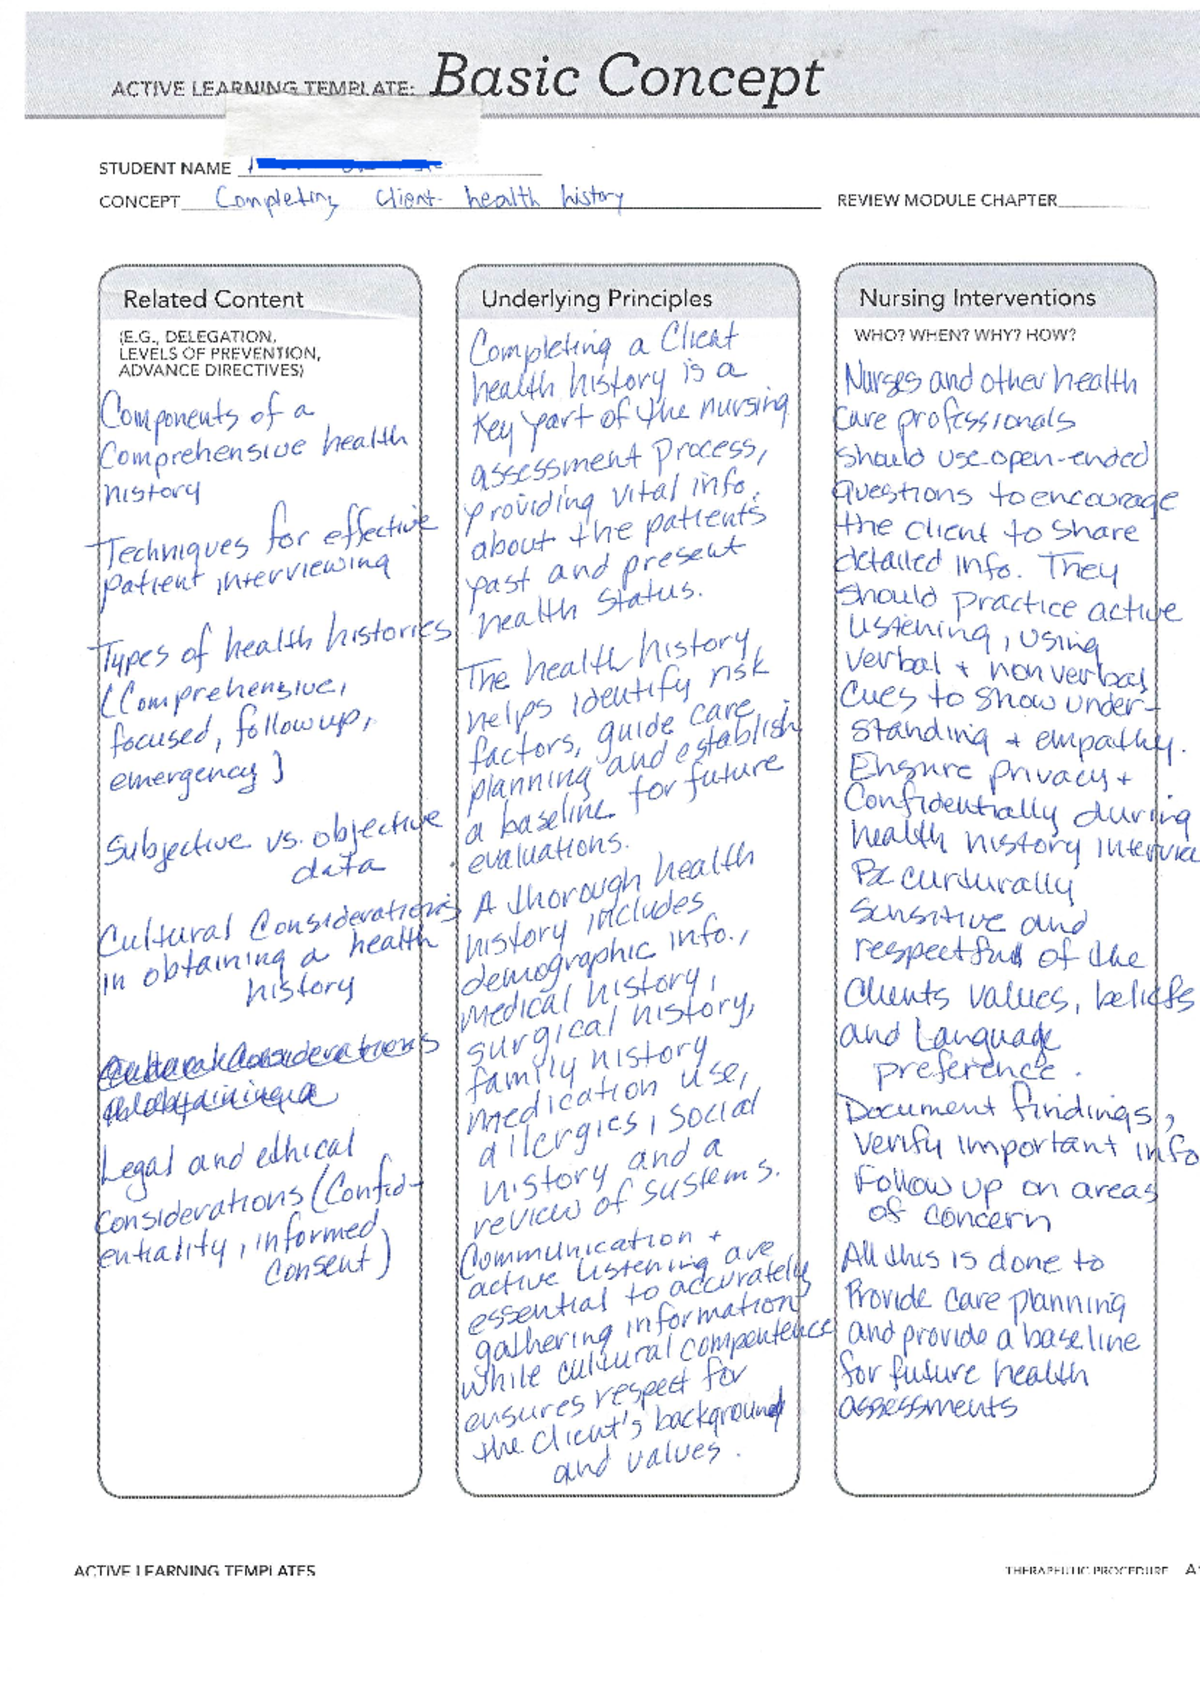 ACTIVE LEARNING TEMPLATE: Basic Concept
STUDENT NAME
CONCEPT Completing Client health history
REVIEW MODULE CHAPTER
Related Content
(E.G., DELEGATION,
LEVELS OF PREVENTION,
ADVANCE DIRECTIVES)
Components of a
Comprehensive health
history
Techniques for effective
patient interviewing
Types of health histories
(Comprehensive,
focused, follow up,
emergency)
Subjective vs. objective
data
Cultural Considerations
in obtaining a health
history
Legal and ethical
Considerations (Confid-
entiality, informed
Consent)
Underlying Principles
Completing a Client
health history is a
Key part of the nursing
assessment process,
providing vital info.
about the patients
past and present
health status.
The health history
helps identify risk
factors, guide care
planning and establish
a baseline for future
evaluations.
A thorough health
history includes
demographic info.,
medical history,
surgical history,
family history
medication use,
allergies, social
history and a
review of systems.
Communication +
active listening are
essential to accurately
gathering information
while cultural compentence
ensures respect for
the client's background
and values.
Nursing Interventions
WHO? WHEN? WHY? HOW?
Nurses and other health
Care professionals
Should use open-ended
questions to encourage
the client to share
detailed info. They
should practice active
listening, using
verbal + nonverbal
cues to show under-
standing + empathy.
Ensure privacy +
Confidentially during
health history intervie
Be curdurally
sensitive and
respectful of the
Clients values, beliefs
and language
preference.
Document findings,
verify important info
Follow up on areas
of concern
All this is done to
Provide care planning
and provide a baseline
for future health
assessments
ACTIVE LEARNING TEMPLATES
THERAPEUTIC PROCEDURE A